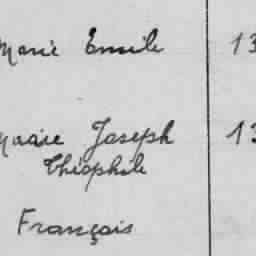 Marie Emile 13
Marie Joseph 13
Théophile
Français